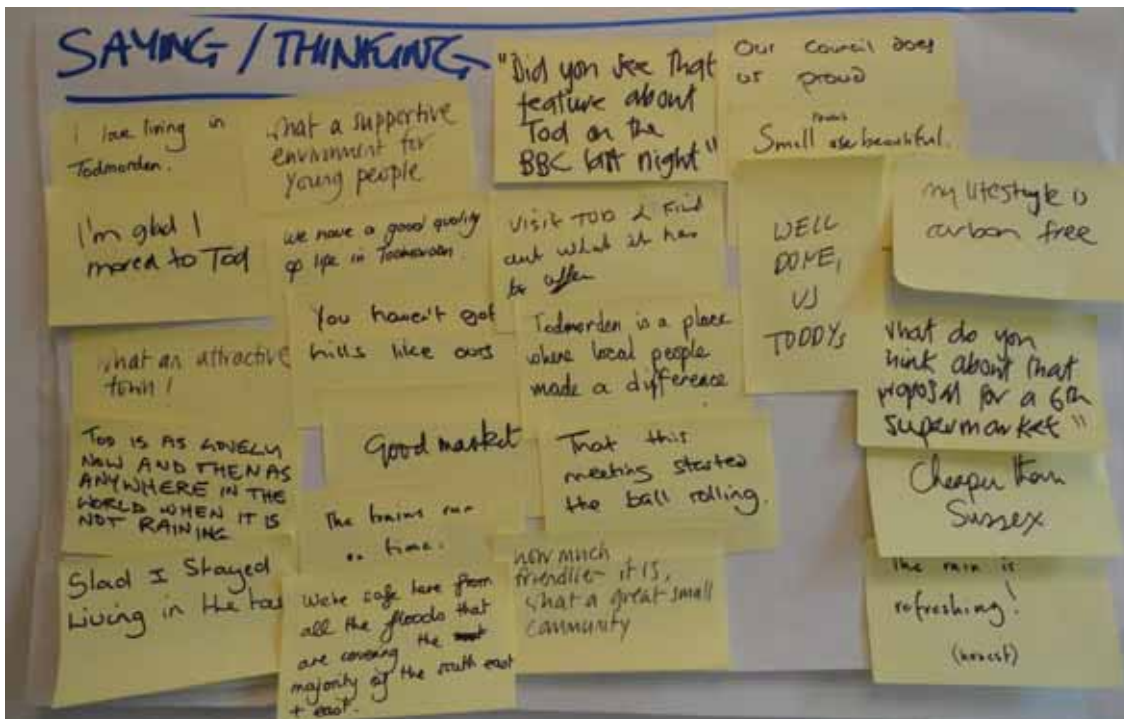 SAYING / THINKING
I love living in
Todmorden.
What a supportive
environment for
young people
"Did you see that
feature about
Tod on the
BBC last night"
Our council does
us proud
Small is beautiful.
I'm glad I
moved to Tod
We have a good quality
of life in Todmorden.
Visit TOD & find
out what it has
to offer
WELL
DONE,
US
TODDYS
My lifestyle is
carbon free
What an attractive
town!
You haven't got
hills like ours
Todmorden is a place
where local people
made a difference
What do you
think about that
proposal for a 6th
supermarket"
TOD IS AS LOVELY
NOW AND THEN AS
ANYWHERE IN THE
WORLD WHEN IT IS
NOT RAINING
Good market
That this
meeting started
the ball rolling.
Cheaper than
Sussex
The trains run
on time.
Glad I Stayed
Living in the
We're safe here from
all the floods that
are covering the
majority of the south east
+ east.
how much
friendlier it is,
What a great small
community
The rain is
refreshing!
(honest)